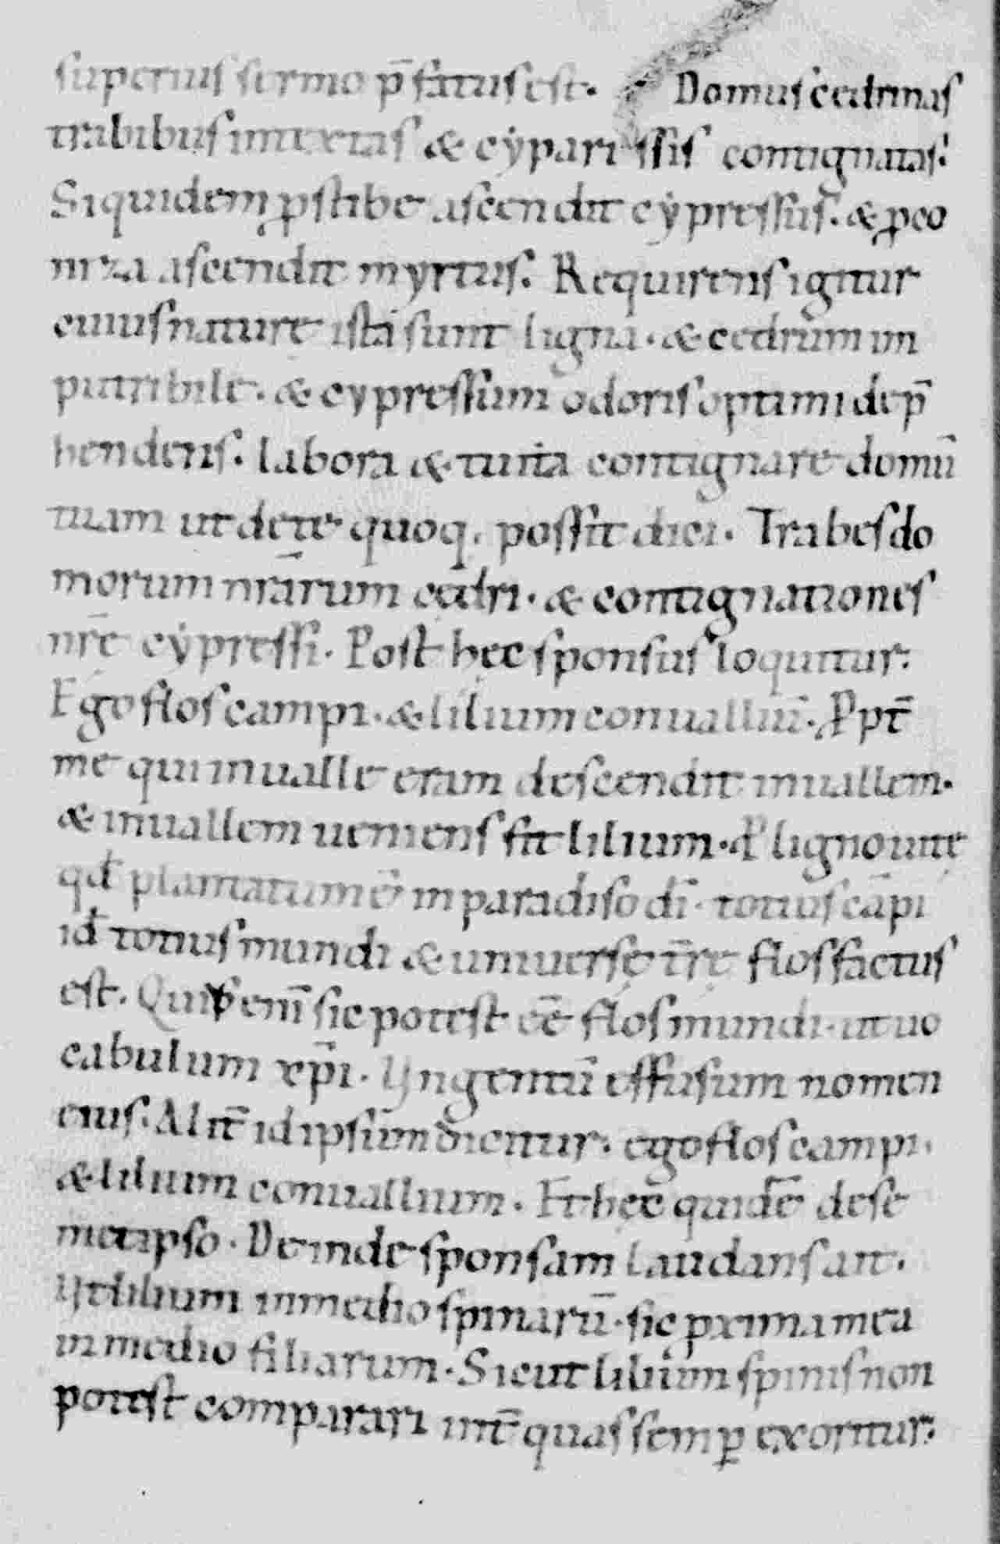 superius sermo p̄fatus est. Domus cedrinas
trabibus intextas & cyparissis contignatas.
Siquidem ꝓ stibe ascendit cypressus. & ꝓ co
niza ascendit myrtus. Requirens igitur
cuius nature ista sunt ligna. & cedrum im
putribile. & cypressum odoris optimi dep̄
hendens. labora & tu ita contignare domū
tuam ut de te quoq. possit dici. Trabes do
morum nr̄arum cedri. & contignationes
nr̄e cypressi. Post hec sponsus loquitur.
Ego flos campi. & lilium conualliū. Ꝓpt̄
me qui in ualle eram descendit in uallem.
& in uallem ueniens fit lilium. P̱ ligno uitę
qđ plantatum ē in paradiso dī. totius cāpi
id totius mundi & uniuersę t̄rę flos factus
est. Quid enī sic potest eē flos mundi. ut uo
cabulum xp̄i. Vngentū effusum nomen
eius. Alit̄ id ipsum dicitur. ego flos campi.
& lilium conuallium. Et hęc quidē de se
metipso. Deinde sponsam laudans ait.
Vt lilium in medio spinarū. sic ꝓxima mea
in medio filiarum. Sicut lilium spinis non
potest comparari int̄ quas semꝑ exoritur.